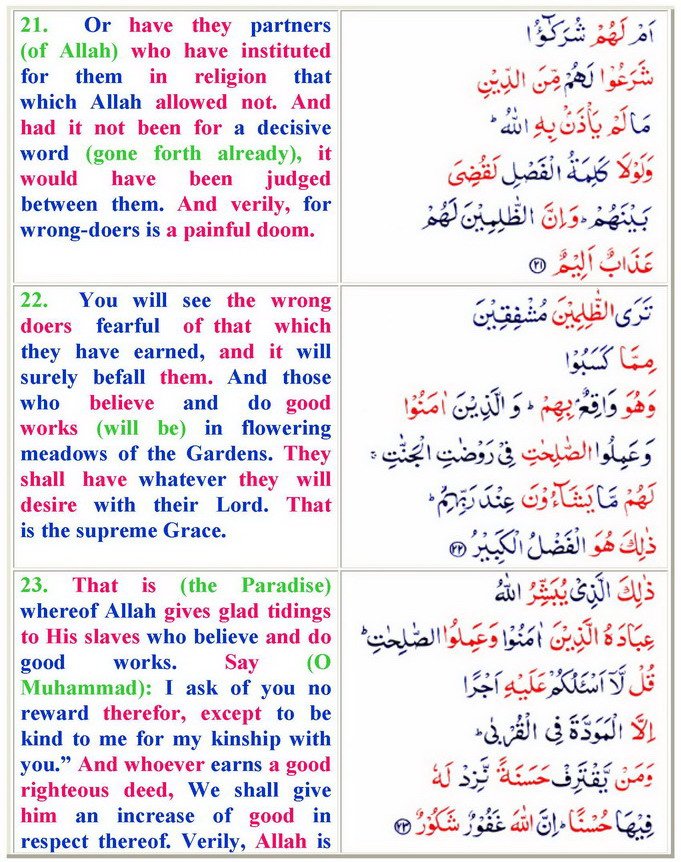 21. Or have they partners
(of Allah) who have instituted
for them in religion that
which Allah allowed not. And
had it not been for a decisive
word (gone forth already), it
would have been judged
between them. And verily, for
wrong-doers is a painful doom.
اَمْ لَهُمْ شُرَكٰٓؤُا
شَرَعُوْا لَهُمْ مِّنَ الدِّيْنِ
مَا لَمْ يَاْذَنْۢ بِهِ اللّٰهُ ؕ
وَلَوْلَا كَلِمَةُ الْفَصْلِ لَقُضِىَ
بَيْنَهُمْ ؕ وَاِنَّ الظّٰلِمِيْنَ لَهُمْ
عَذَابٌ اَلِيْمٌ ﴿۲۱﴾
22. You will see the wrong
doers fearful of that which
they have earned, and it will
surely befall them. And those
who believe and do good
works (will be) in flowering
meadows of the Gardens. They
shall have whatever they will
desire with their Lord. That
is the supreme Grace.
تَرَى الظّٰلِمِيْنَ مُشْفِقِيْنَ
مِمَّا كَسَبُوْا
وَهُوَ وَاقِعٌۢ بِهِمْ ؕ وَالَّذِيْنَ اٰمَنُوْا
وَعَمِلُوا الصّٰلِحٰتِ فِىْ رَوْضٰتِ الْجَنّٰتِ ۚ
لَهُمْ مَّا يَشَآءُوْنَ عِنْدَ رَبِّهِمْ ؕ
ذٰلِكَ هُوَ الْفَضْلُ الْكَبِيْرُ ﴿۲۲﴾
23. That is (the Paradise)
whereof Allah gives glad tidings
to His slaves who believe and do
good works. Say (O
Muhammad): I ask of you no
reward therefor, except to be
kind to me for my kinship with
you.” And whoever earns a good
righteous deed, We shall give
him an increase of good in
respect thereof. Verily, Allah is
ذٰلِكَ الَّذِىْ يُبَشِّرُ اللّٰهُ
عِبَادَهُ الَّذِيْنَ اٰمَنُوْا وَعَمِلُوا الصّٰلِحٰتِ ؕ
قُلْ لَّاۤ اَسْئَلُكُمْ عَلَيْهِ اَجْرًا
اِلَّا الْمَوَدَّةَ فِى الْقُرْبٰى ؕ
وَمَنْ يَّقْتَرِفْ حَسَنَةً نَّزِدْ لَهٗ
فِيْهَا حُسْنًا ؕ اِنَّ اللّٰهَ غَفُوْرٌ شَكُوْرٌ ﴿۲۳﴾